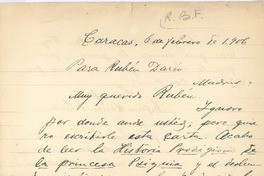 (R. B. F.
Caracas, 6 de febrero de 1906
Para Rubén Darío
Madrid.
Muy querido Rubén:
Ignoro
por donde anda usted; pero quie
ro escribirle esta carta. Acabo
de leer la Historia Prodigiosa de
la princesa Psiquia y el